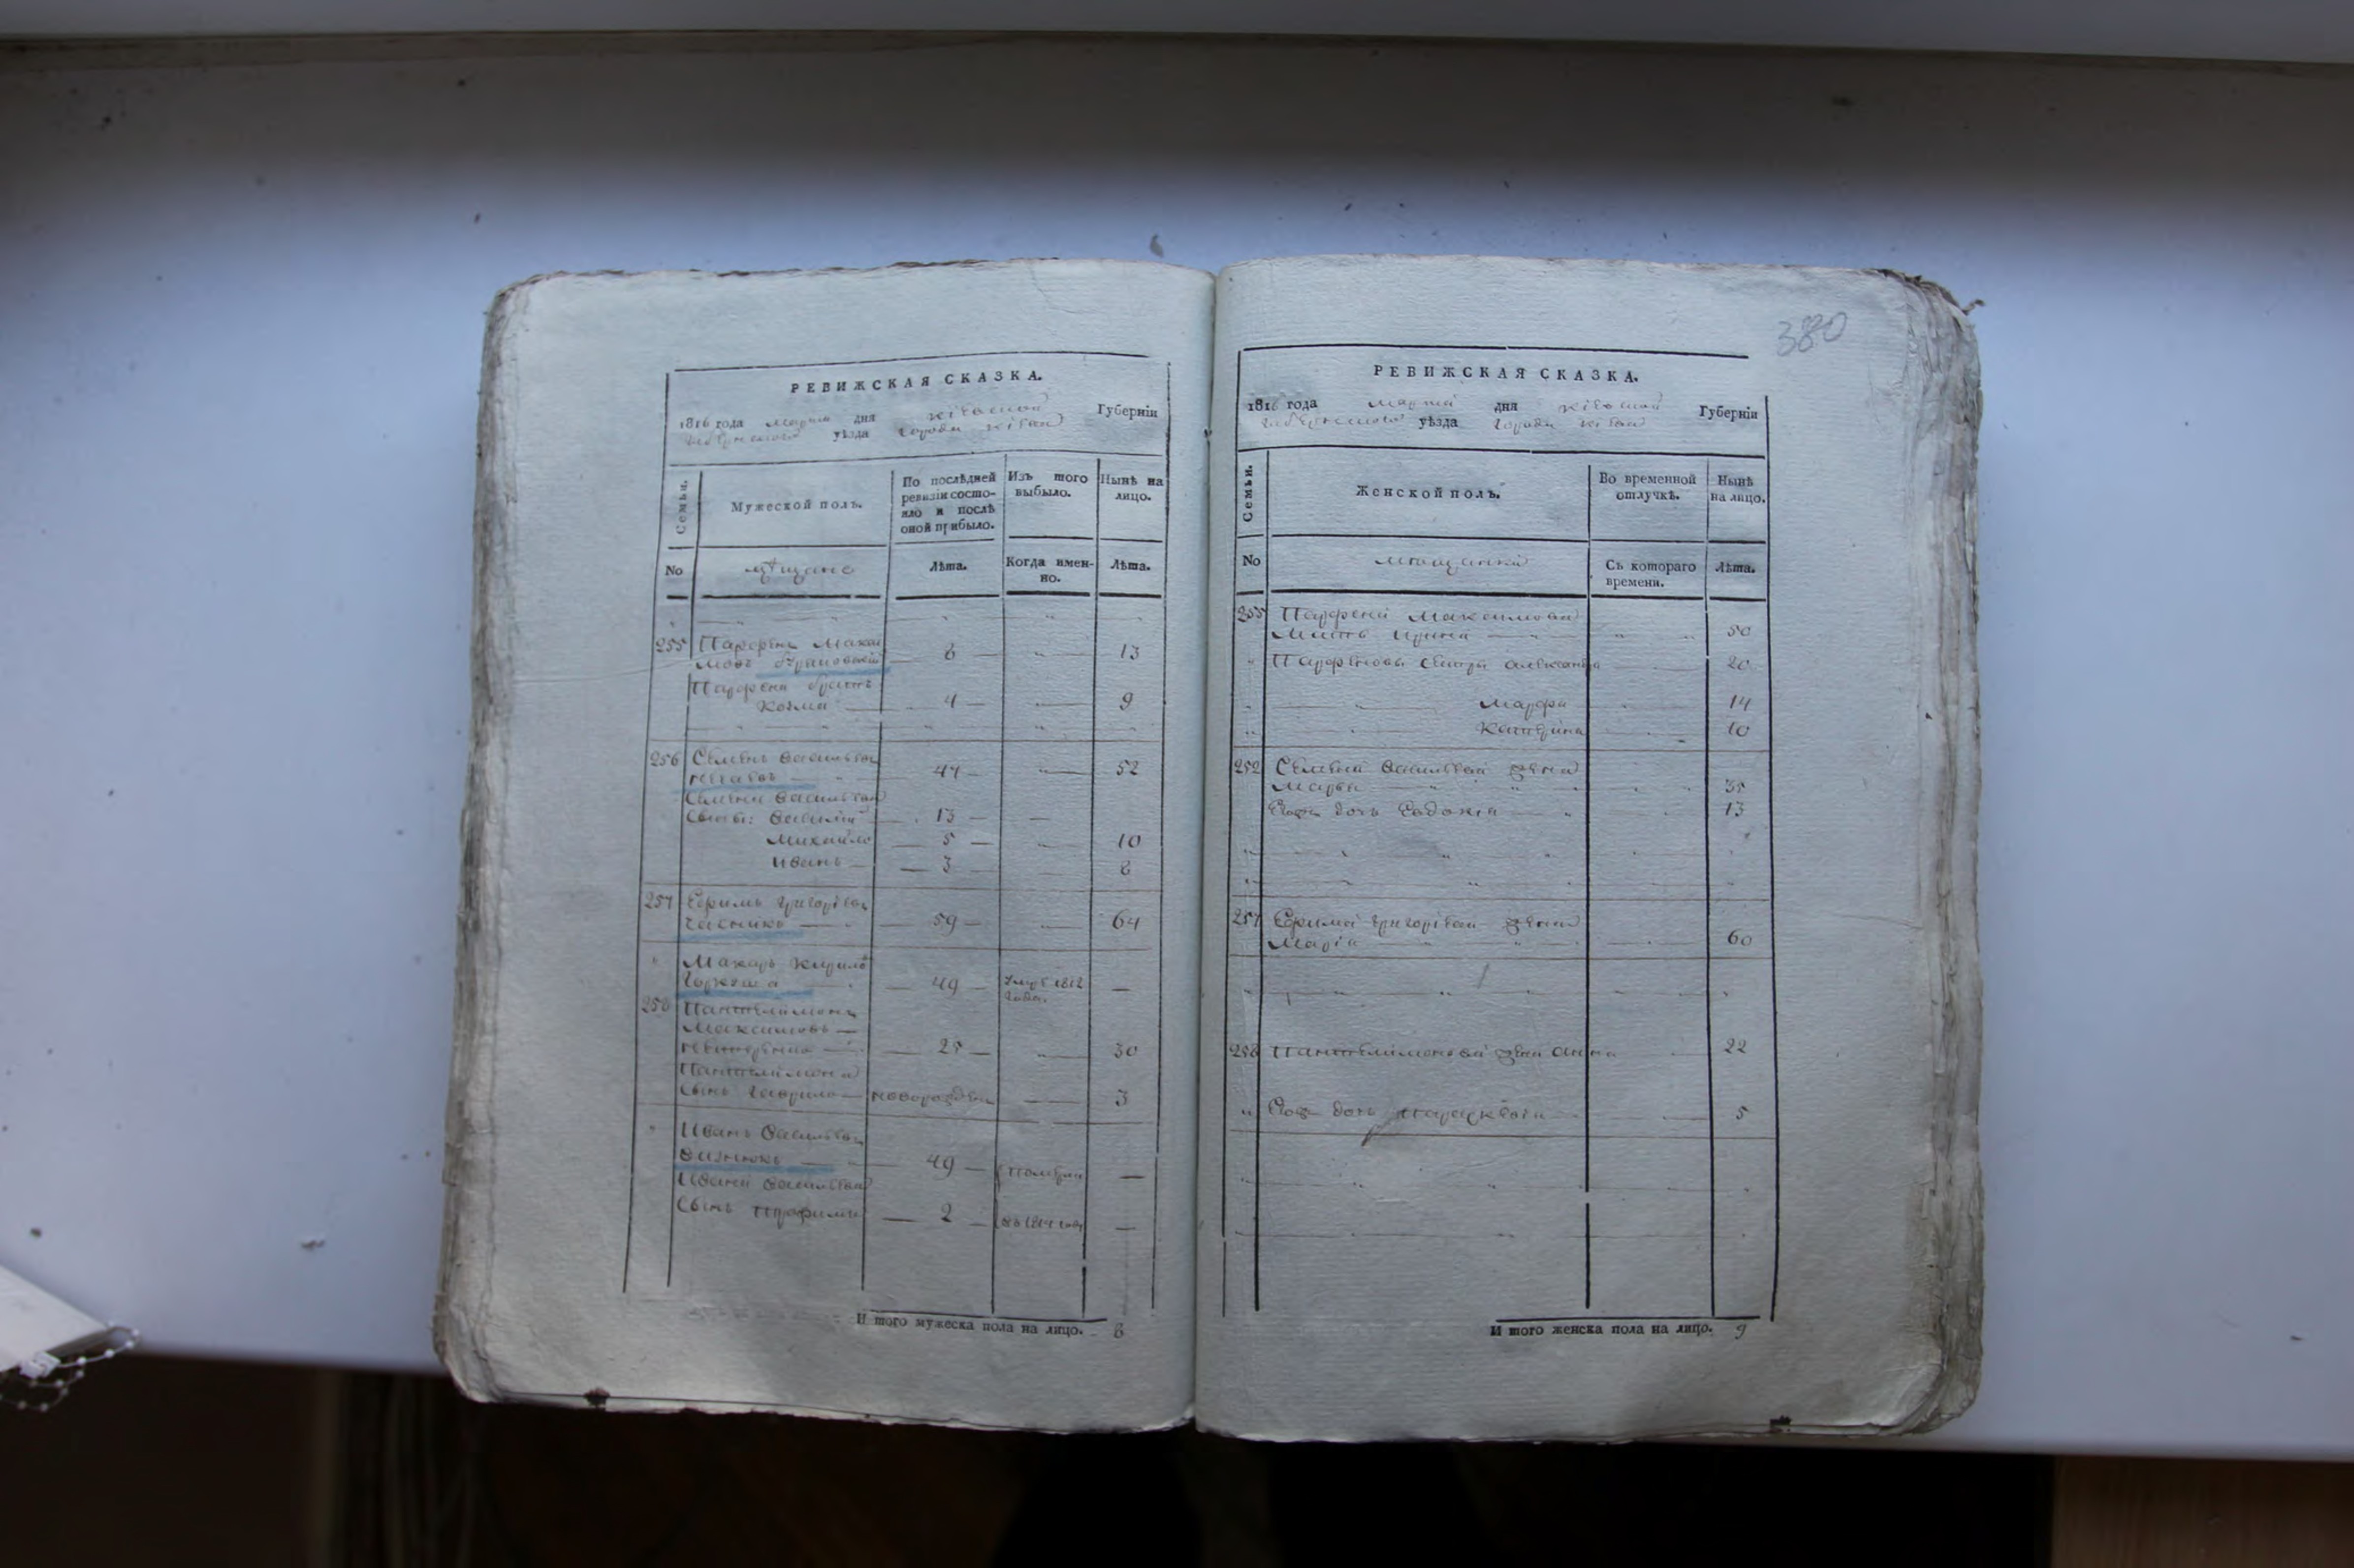 380
РЕВИЖСКАЯ СКАЗКА.
1816 года марта дня Кіевской Губерніи
уѣзда города Кіева
Семьи.
Мужеской полъ.
По послѣдней
ревизіи состо-
яло и послѣ
оной прибыло.
Изъ того
выбыло.
Нынѣ на
лицо.
No
мѣщане
Лѣта.
Когда имен-
но.
Лѣта.
255 Парфенъ Макси
мовъ 8 13
Парфена братъ
Козма 4 9
256 Семенъ Васильевъ
44 52
Семена Васильева
Сыны: Василий 13
Михайло 5 10
Иванъ 3 8
257 Ефимъ Григорьевъ
59 64
Макаръ Кирилов
49 Умре 1812
года.
258 Пантелимонъ
Максимовъ
25 30
Пантелимона
Сынъ Гаврило новорожденъ 3
Иванъ Васильевъ
49 померли
Ивана Васильева
Сынъ Трофимъ 2 въ 1814 году
И того мужеска пола на лицо. 8
РЕВИЖСКАЯ СКАЗКА.
1816 года марта дня Кіевской Губерніи
уѣзда города Кіева
Семьи.
Женской полъ.
Во временной
отлучкѣ.
Нынѣ
на лицо.
No
мѣщанки
Съ котораго
времени.
Лѣта.
255 Парфена Максимова
Мать Ирина 50
Парфенова сестра Александра 20
Марфа 14
Катерина 10
Семена Васильева жена
Марья 35
дочь Евдокия 13
257 Ефима Григорьева жена
Марія 60
258 Пантелимонова жена Анна 22
дочь Параскевія 5
И того женска пола на лицо. 9